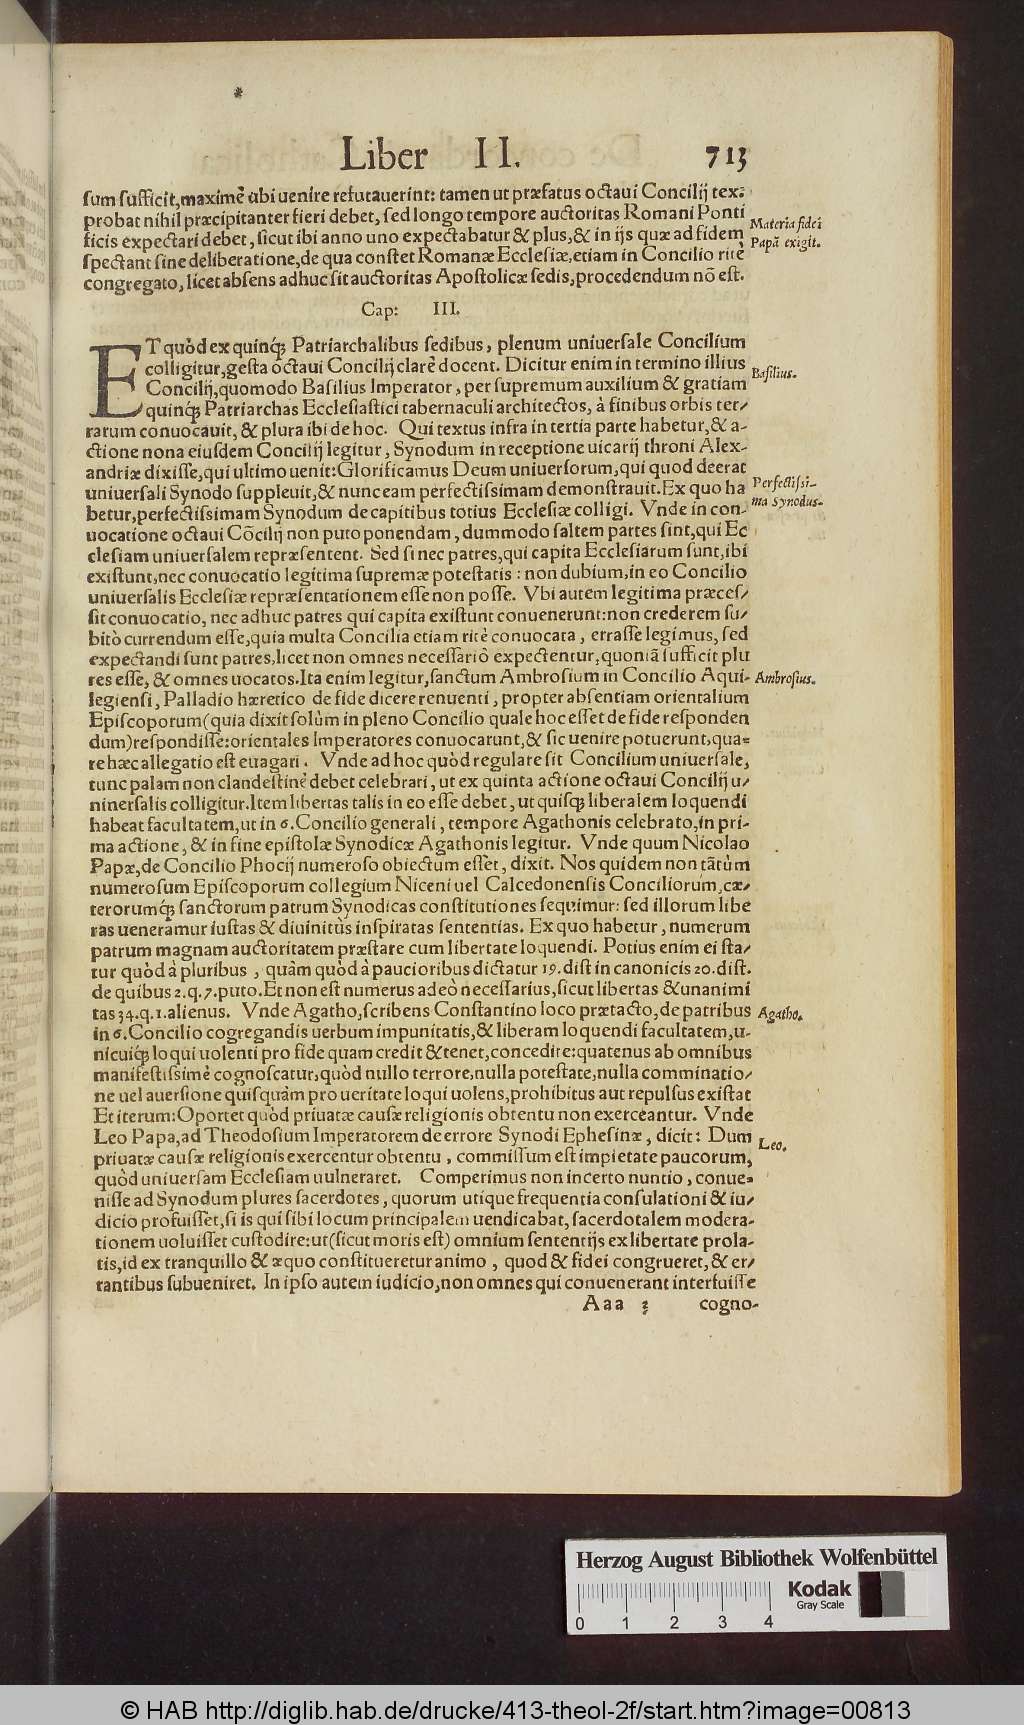 Liber II. 713
sum sufficit, maximè ubi uenire refutauerint: tamen ut præfatus octaui Concilij tex-
probat nihil præcipitanter fieri debet, sed longo tempore auctoritas Romani Ponti
ficis expectari debet, sicut ibi anno uno expectabatur & plus, & in ijs quæ ad fidem
spectant sine deliberatione, de qua constet Romanæ Ecclesiæ, etiam in Concilio ritè
congregato, licet absens adhuc sit auctoritas Apostolicæ sedis, procedendum nõ est.
Materia fidei
Papã exigit.
Cap: III.
ET quòd ex quinq; Patriarchalibus sedibus, plenum uniuersale Concilium
colligitur, gesta octaui Concilij clarè docent. Dicitur enim in termino illius
Concilij, quomodo Basilius Imperator, per supremum auxilium & gratiam
quinq; Patriarchas Ecclesiastici tabernaculi architectos, à finibus orbis ter-
rarum conuocauit, & plura ibi de hoc. Qui textus infra in tertia parte habetur, & a-
ctione nona eiusdem Concilij legitur, Synodum in receptione uicarij throni Alex-
andriæ dixisse, qui ultimo uenit: Glorificamus Deum uniuersorum, qui quod deerat
uniuersali Synodo suppleuit, & nunc eam perfectissimam demonstrauit. Ex quo ha
betur, perfectissimam Synodum de capitibus totius Ecclesiæ colligi. Vnde in con-
uocatione octaui Cõcilij non puto ponendam, dummodo saltem partes sint, qui Ec
clesiam uniuersalem repræsentent. Sed si nec patres, qui capita Ecclesiarum sunt, ibi
existunt, nec conuocatio legitima supremæ potestatis: non dubium, in eo Concilio
uniuersalis Ecclesiæ repræsentationem esse non posse. Vbi autem legitima præces-
sit conuocatio, nec adhuc patres qui capita existunt conuenerunt: non crederem su-
bitò currendum esse, quia multa Concilia etiam ritè conuocata, errasse legimus, sed
expectandi sunt patres, licet non omnes necessariò expectentur, quoniã sufficit plu
res esse, & omnes uocatos. Ita enim legitur, sanctum Ambrosium in Concilio Aqui-
legiensi, Palladio hæretico de fide dicere renuenti, propter absentiam orientalium
Episcoporum (quia dixit solùm in pleno Concilio quale hoc esset de fide responden
dum) respondisse: orientales Imperatores conuocarunt, & sic uenire potuerunt, qua-
re hæc allegatio est euagari. Vnde ad hoc quòd regulare sit Concilium uniuersale,
tunc palam non clandestinè debet celebrari, ut ex quinta actione octaui Concilij u-
niuersalis colligitur. Item libertas talis in eo esse debet, ut quisq; liberalem loquendi
habeat facultatem, ut in 6. Concilio generali, tempore Agathonis celebrato, in pri-
ma actione, & in fine epistolæ Synodicæ Agathonis legitur. Vnde quum Nicolao
Papæ, de Concilio Phocij numeroso obiectum esset, dixit. Nos quidem non tãtùm
numerosum Episcoporum collegium Niceni uel Calcedonensis Conciliorum, cæ-
terorumq; sanctorum patrum Synodicas constitutiones sequimur: sed illorum libe
ras ueneramur iustas & diuinitùs inspiratas sententias. Ex quo habetur, numerum
patrum magnam auctoritatem præstare cum libertate loquendi. Potius enim ei sta-
tur quòd à pluribus, quàm quòd à paucioribus dictatur 19. dist in canonicis 20. dist.
de quibus 2. q. 7. puto. Et non est numerus adeò necessarius, sicut libertas & unanimi
tas 34. q. 1. alienus. Vnde Agatho, scribens Constantino loco prætacto, de patribus
in 6. Concilio cogregandis uerbum impunitatis, & liberam loquendi facultatem, u-
nicuiq; loqui uolenti pro fide quam credit & tenet, concedite: quatenus ab omnibus
manifestissimè cognoscatur, quòd nullo terrore, nulla potestate, nulla comminatio-
ne uel auersione quisquàm pro ueritate loqui uolens, prohibitus aut repulsus existat
Et iterum: Oportet quòd priuatæ causæ religionis obtentu non exerceantur. Vnde
Leo Papa, ad Theodosium Imperatorem de errore Synodi Ephesinæ, dicit: Dum
priuatæ causæ religionis exercentur obtentu, commissum est impietate paucorum,
quòd uniuersam Ecclesiam uulneraret. Comperimus non incerto nuntio, conue-
nisse ad Synodum plures sacerdotes, quorum utique frequentia consulationi & iu-
dicio profuisset, si is qui sibi locum principalem uendicabat, sacerdotalem modera-
tionem uoluisset custodire: ut (sicut moris est) omnium sententijs ex libertate prola-
tis, id ex tranquillo & æquo constitueretur animo, quod & fidei congrueret, & er-
rantibus subueniret. In ipso autem iudicio, non omnes qui conuenerant interfuisse
Basilius.
Perfectissi-
ma Synodus.
Ambrosius.
Agatho.
Leo.
Aaa 3 cogno-
Herzog August Bibliothek Wolfenbüttel
Kodak
Gray Scale
0 1 2 3 4
© HAB http://diglib.hab.de/drucke/413-theol-2f/start.htm?image=00813